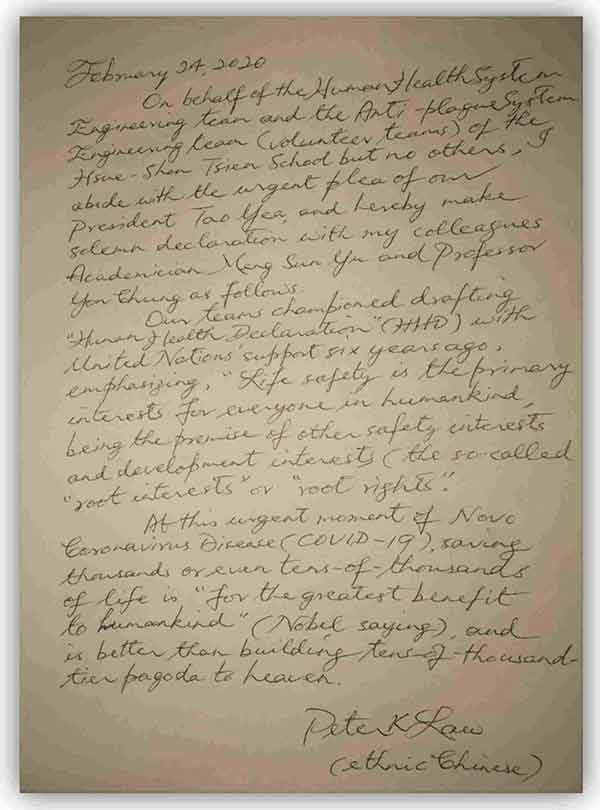 February 24, 2020
On behalf of the Human Health System
Engineering team and the Anti-plague System
Engineering team (volunteer teams) of the
Hsue-Shen Tsien School but no others, I
abide with the urgent plea of our
President Tao Yea, and hereby make
solemn declaration with my colleagues
Academician Meng Sun Yu and Professor
Yen Chung as follows.
Our teams championed drafting
"Human Health Declaration" (HHD) with
United Nations support six years ago,
emphasizing, "Life safety is the primary
interests for everyone in humankind,
being the premise of other safety interests
and development interests (the so-called
"root interests" or "root rights".
At this urgent moment of Novo
Coronavirus Disease (COVID-19), saving
thousands or even tens-of-thousands
of life is "for the greatest benefit
to humankind" (Nobel saying), and
is better than building tens-of-thousand-
tier pagoda to heaven.
Peter K Law
(ethnic Chinese)